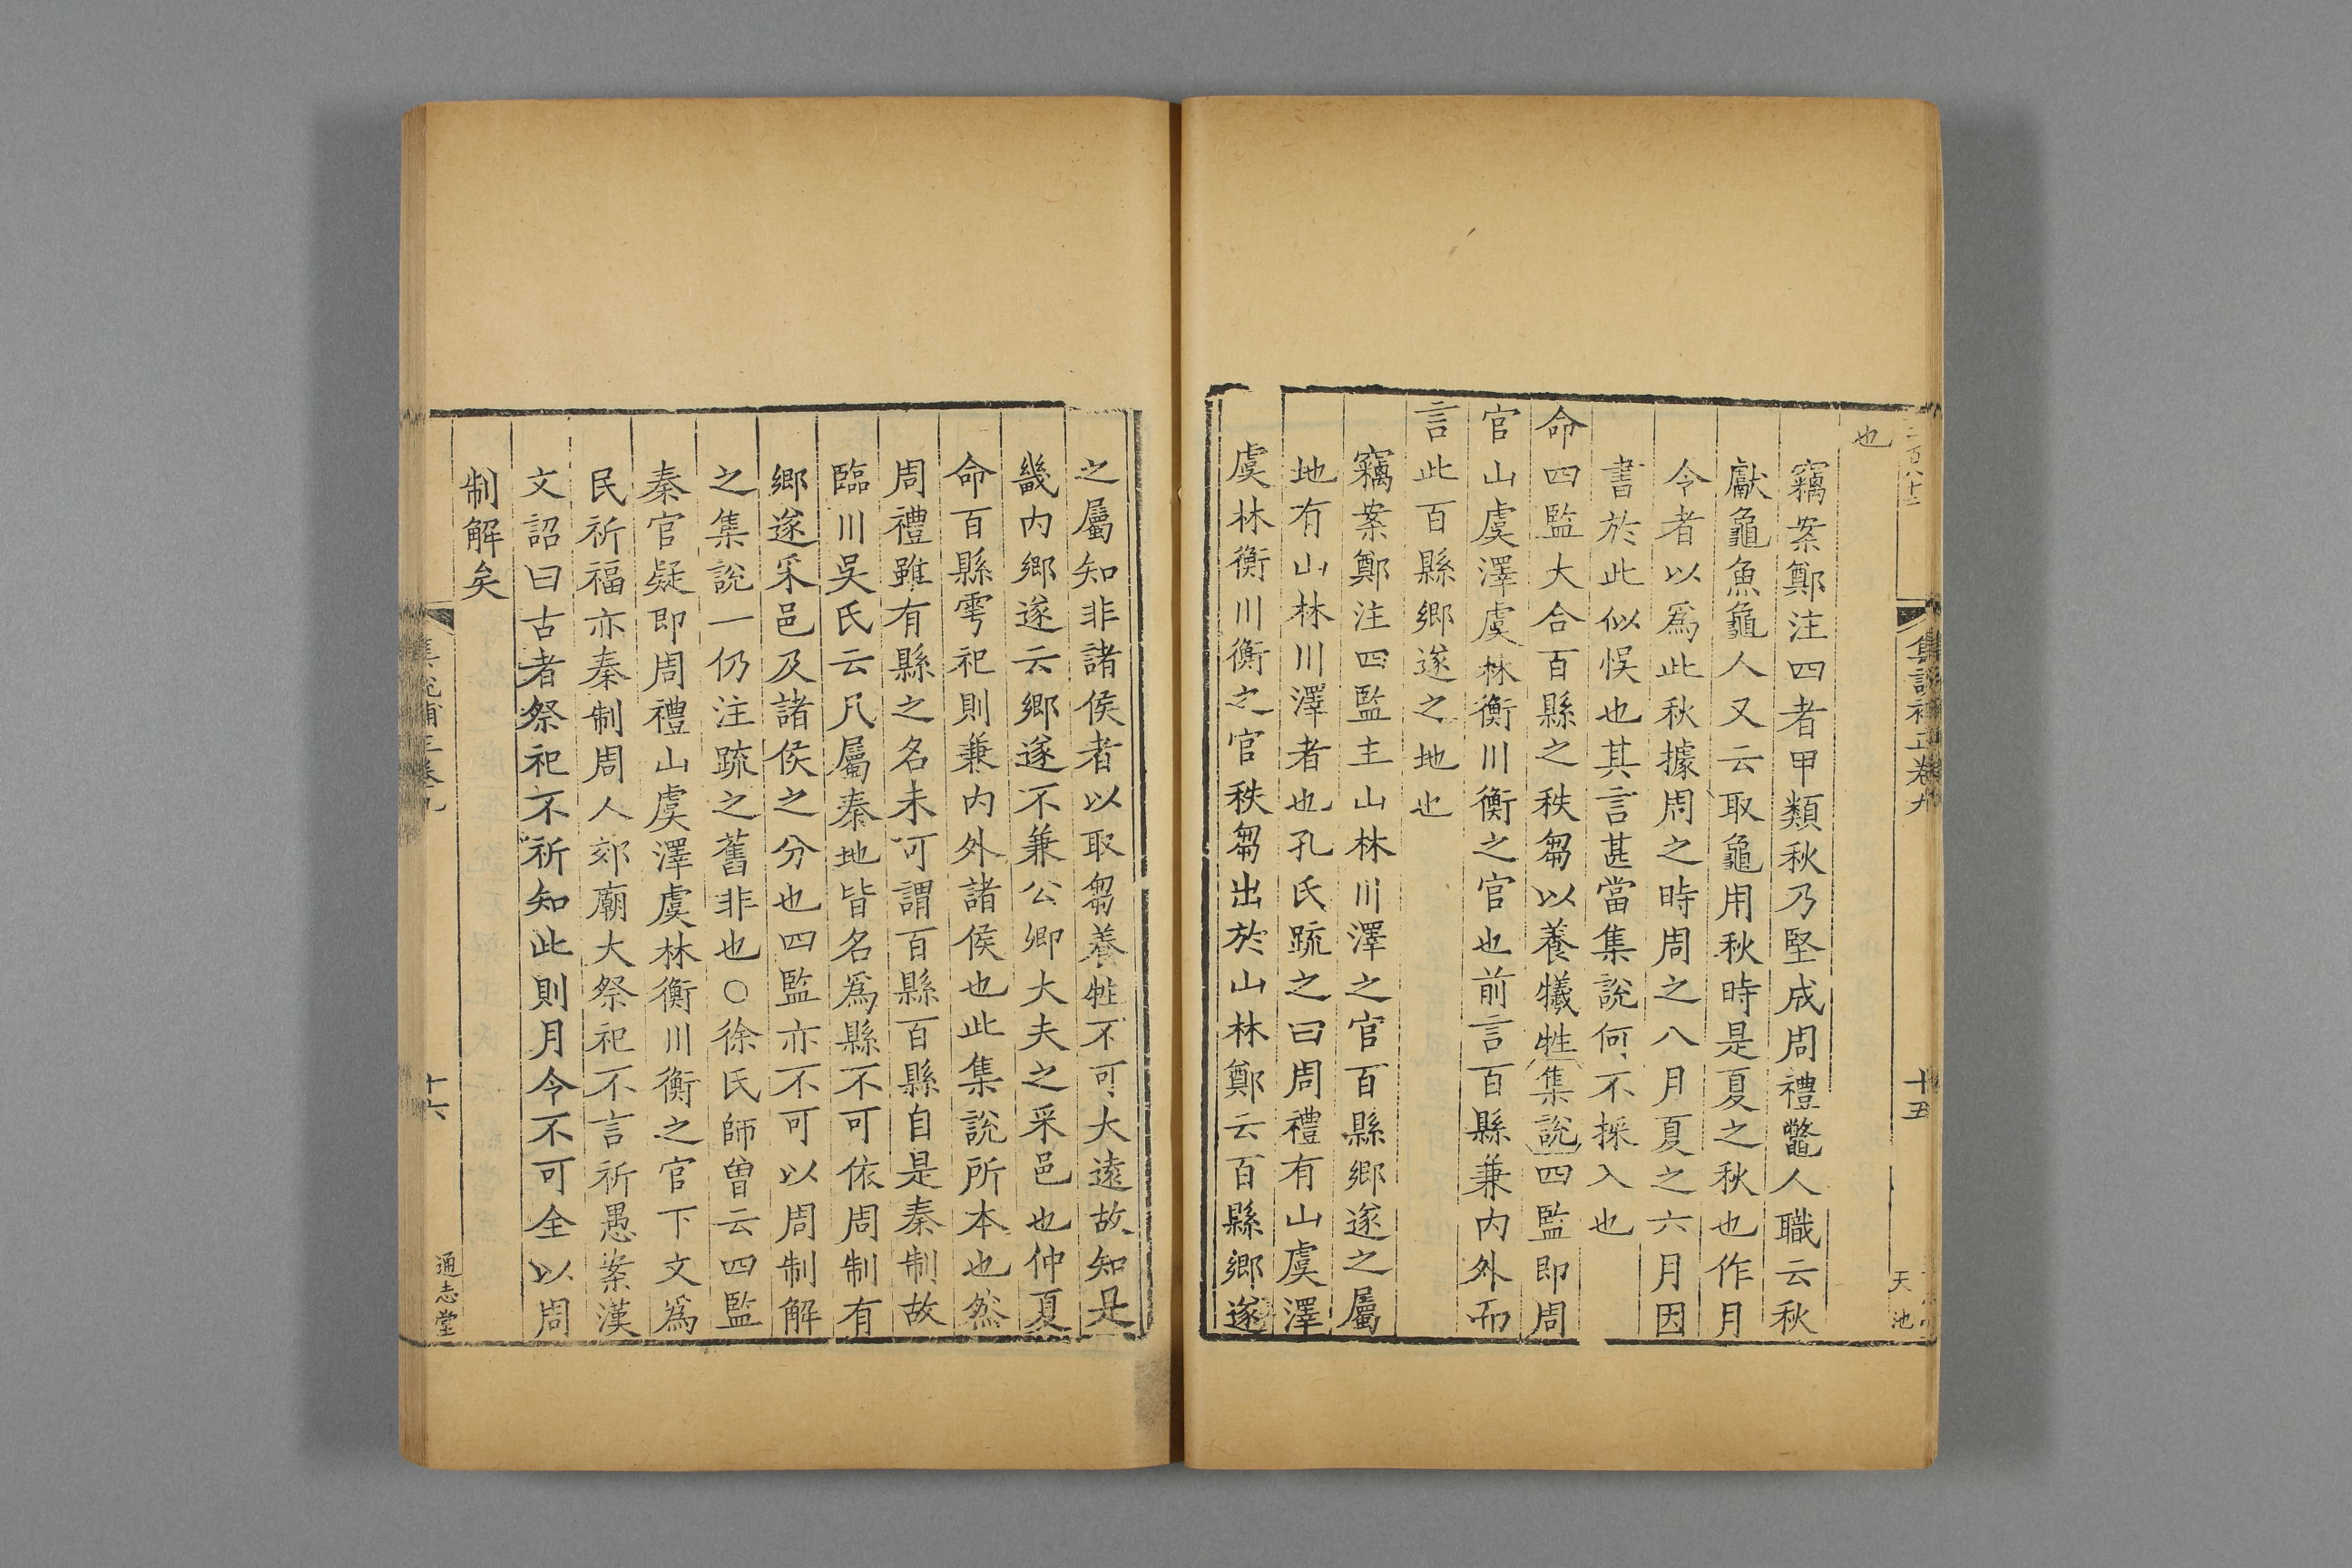 也
竊案鄭注四者甲類秋乃堅成周禮鼈人職云秋
獻龜魚龜人又云取龜用秋時是夏之秋也作月
令者以爲此秋據周之時周之八月夏之六月因
書於此似悞也其言甚當集說何不採入也
命四監大合百縣之秩芻以養犧牲集說四監即周
官山虞澤虞林衡川衡之官也前言百縣兼內外而
言此百縣鄉遂之地也
竊案鄭注四監主山林川澤之官百縣鄉遂之屬
地有山林川澤者也孔氏疏之曰周禮有山虞澤
虞林衡川衡之官秩芻出於山林鄭云百縣鄉遂
集說補正卷九
十五
天池
之屬知非諸侯者以取芻養牲不可大遠故知是
畿內鄉遂云鄉遂不兼公卿大夫之采邑也仲夏
命百縣雩祀則兼內外諸侯也此集說所本也然
周禮雖有縣之名未可謂百縣百縣自是秦制故
臨川吳氏云凡屬秦地皆名爲縣不可依周制有
鄉遂采邑及諸侯之分也四監亦不可以周制解
之集說一仍注疏之舊非也○徐氏師曾云四監
秦官疑即周禮山虞澤虞林衡川衡之官下文爲
民祈福亦秦制周人郊廟大祭祀不言祈愚案漢
文詔曰古者祭祀不祈知此則月令不可全以周
制解矣
集說補正卷九
十六
通志堂